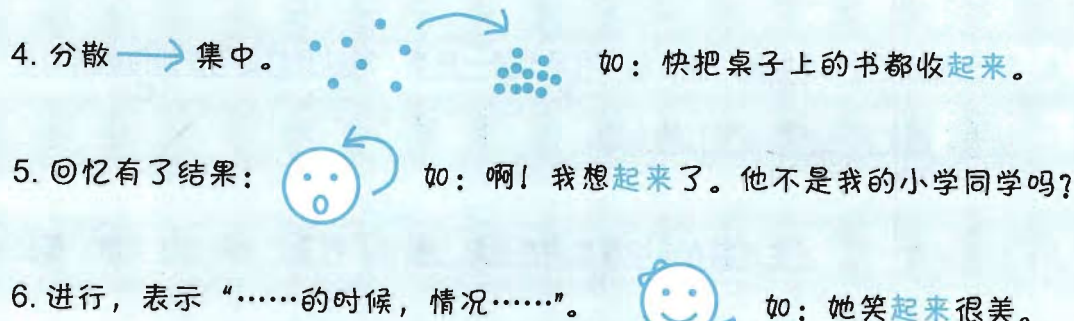 4. 分散 → 集中。 如：快把桌子上的书都收起来。
5. 回忆有了结果： 如：啊！我想起来了。他不是我的小学同学吗？
6. 进行，表示“……的时候，情况……”。 如：她笑起来很美。